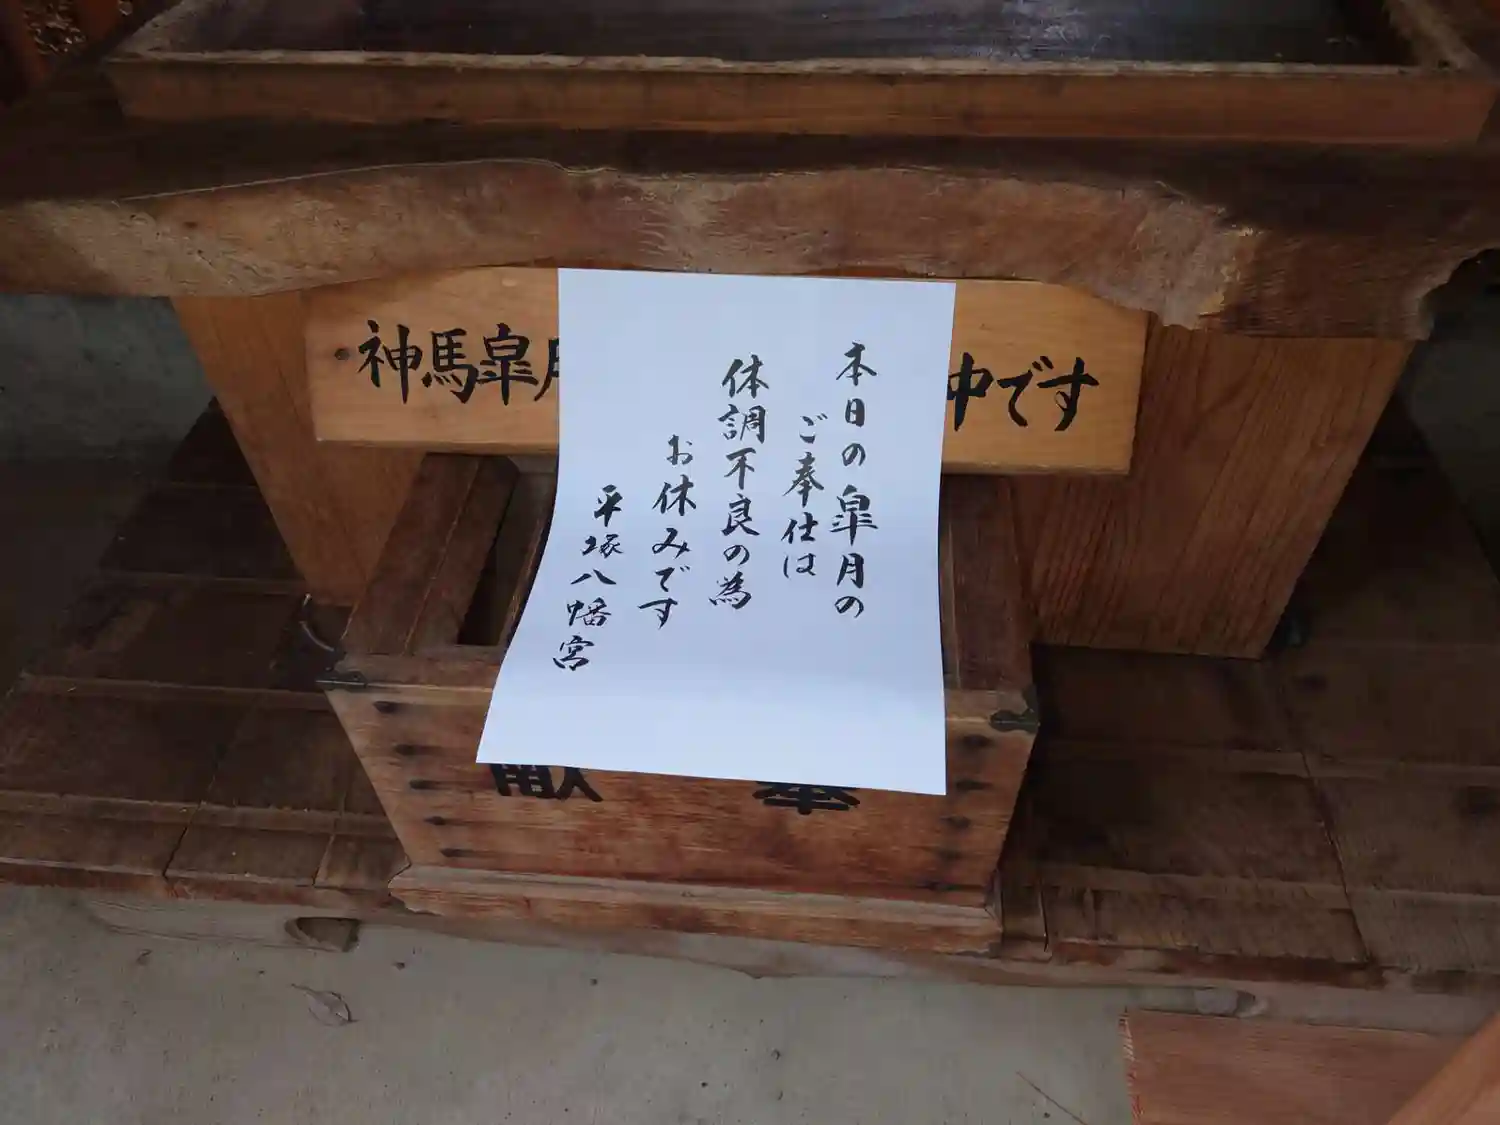 神馬皐月
中です
本日の皐月の
ご奉仕は
体調不良の為
お休みです
平塚八幡宮
献 奉